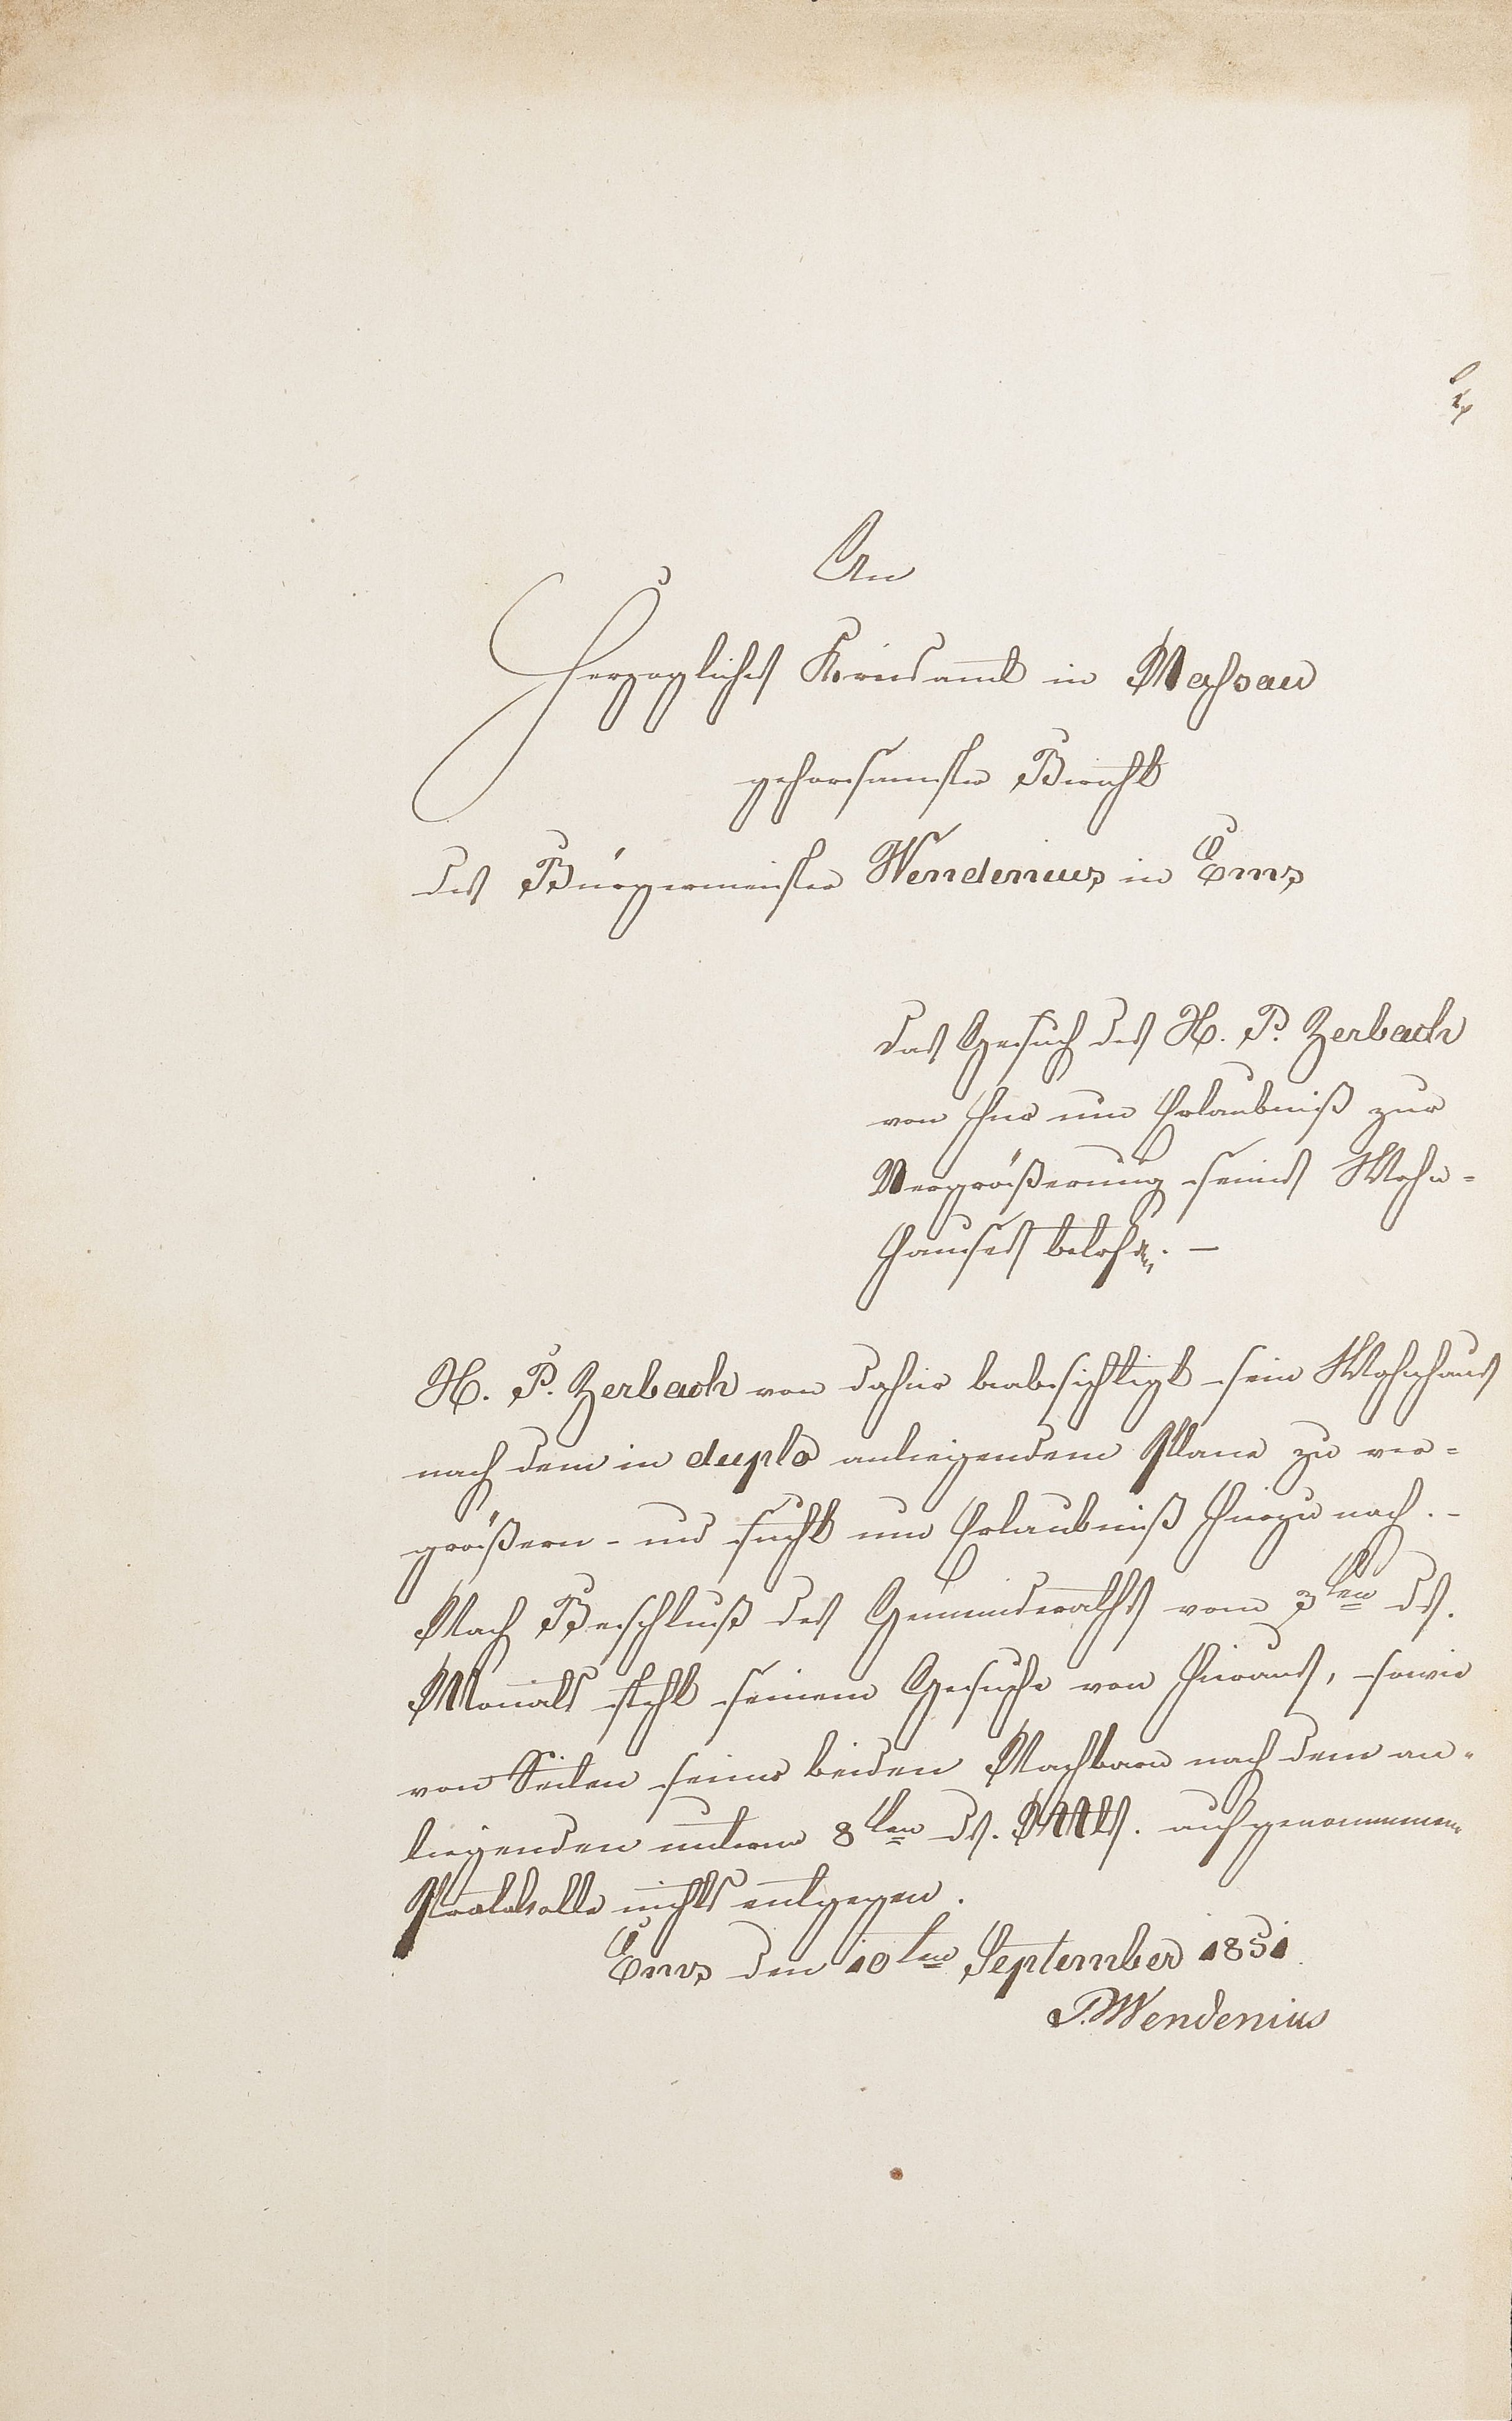 An
Herzogliches Kreisamt in Nassau
gehorsamster Bericht
des Bürgermeister Wendenius in Ems
das Gesuch des H. P. Zerbach
von hier um Erlaubniß zur
Vergrößerung seines Wohn-
hauses betrfd. –
H. P. Zerbach von dahier beabsichtigt sein Wohnhaus
nach dem in duplo anliegendem Plane zu ver-
größern – und sucht um Erlaubniß hierzu nach. –
Nach Beschluß des Gemeinderaths vom 3ten ds.
Monats steht seinem Gesuche von hieraus, sowie
von Seiten seiner beiden Nachbarn nach dem an-
liegenden unterm 8ten ds. Mts. aufgenommenen
Protokolle nichts entgegen.
Ems den 10ten September 1851.
P. Wendenius